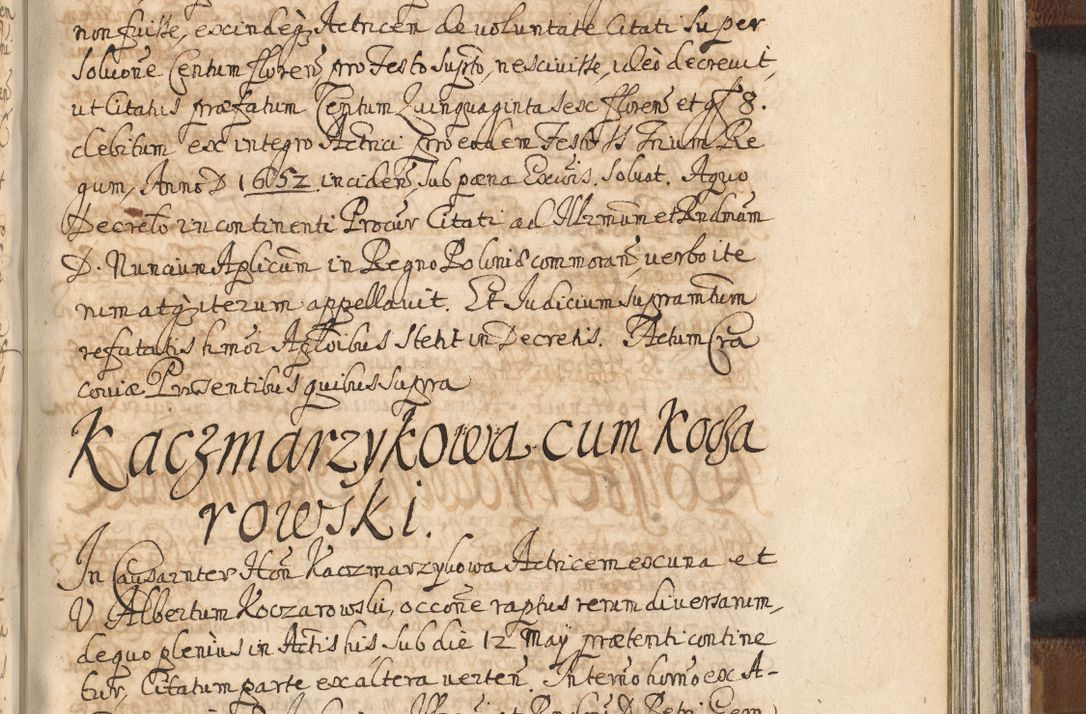 non fuisse, exindeq; Actricem de voluntate Citati super
solu͠one Centum floren͠ pro Festo sup͠to, nescivisse, ideò decrevit,
ut Citatus præfatum Centum Quinquaginta sex floren͠ et gr 8.
debitum ex integro Actrici pro eodem Festo SS Trium Re
gum, Anno D 1652. inciden͠ sub pæna Ex͠cõis. solvat. A quo
Decreto in continenti Procur͠ Citati ad Illrmum et Rndmum
D. Nuncium Aplicum in Regno Poloniæ commoran͠, verbo ite
rum atq; iterum appellavit. Et Judicium supram͠tum
refutatis h͠mõi Ap͠lõibus stetit in Decretis. Actum Cra
coviæ Præsentibus quibus supra
Kaczmarzykowa cum Kocza
rowski.
In Causa inter Hon͠ Kaczmarzykowa Actricem ex una et
V Albertum Koczarowski, occ͠one raptus rerum diversarum,
de quo pleniùs in Actis his, sub die 12 Maÿ prætenti contine
tur, Citatum parte ex altera verten͠. In term͠o h͠no ex A-